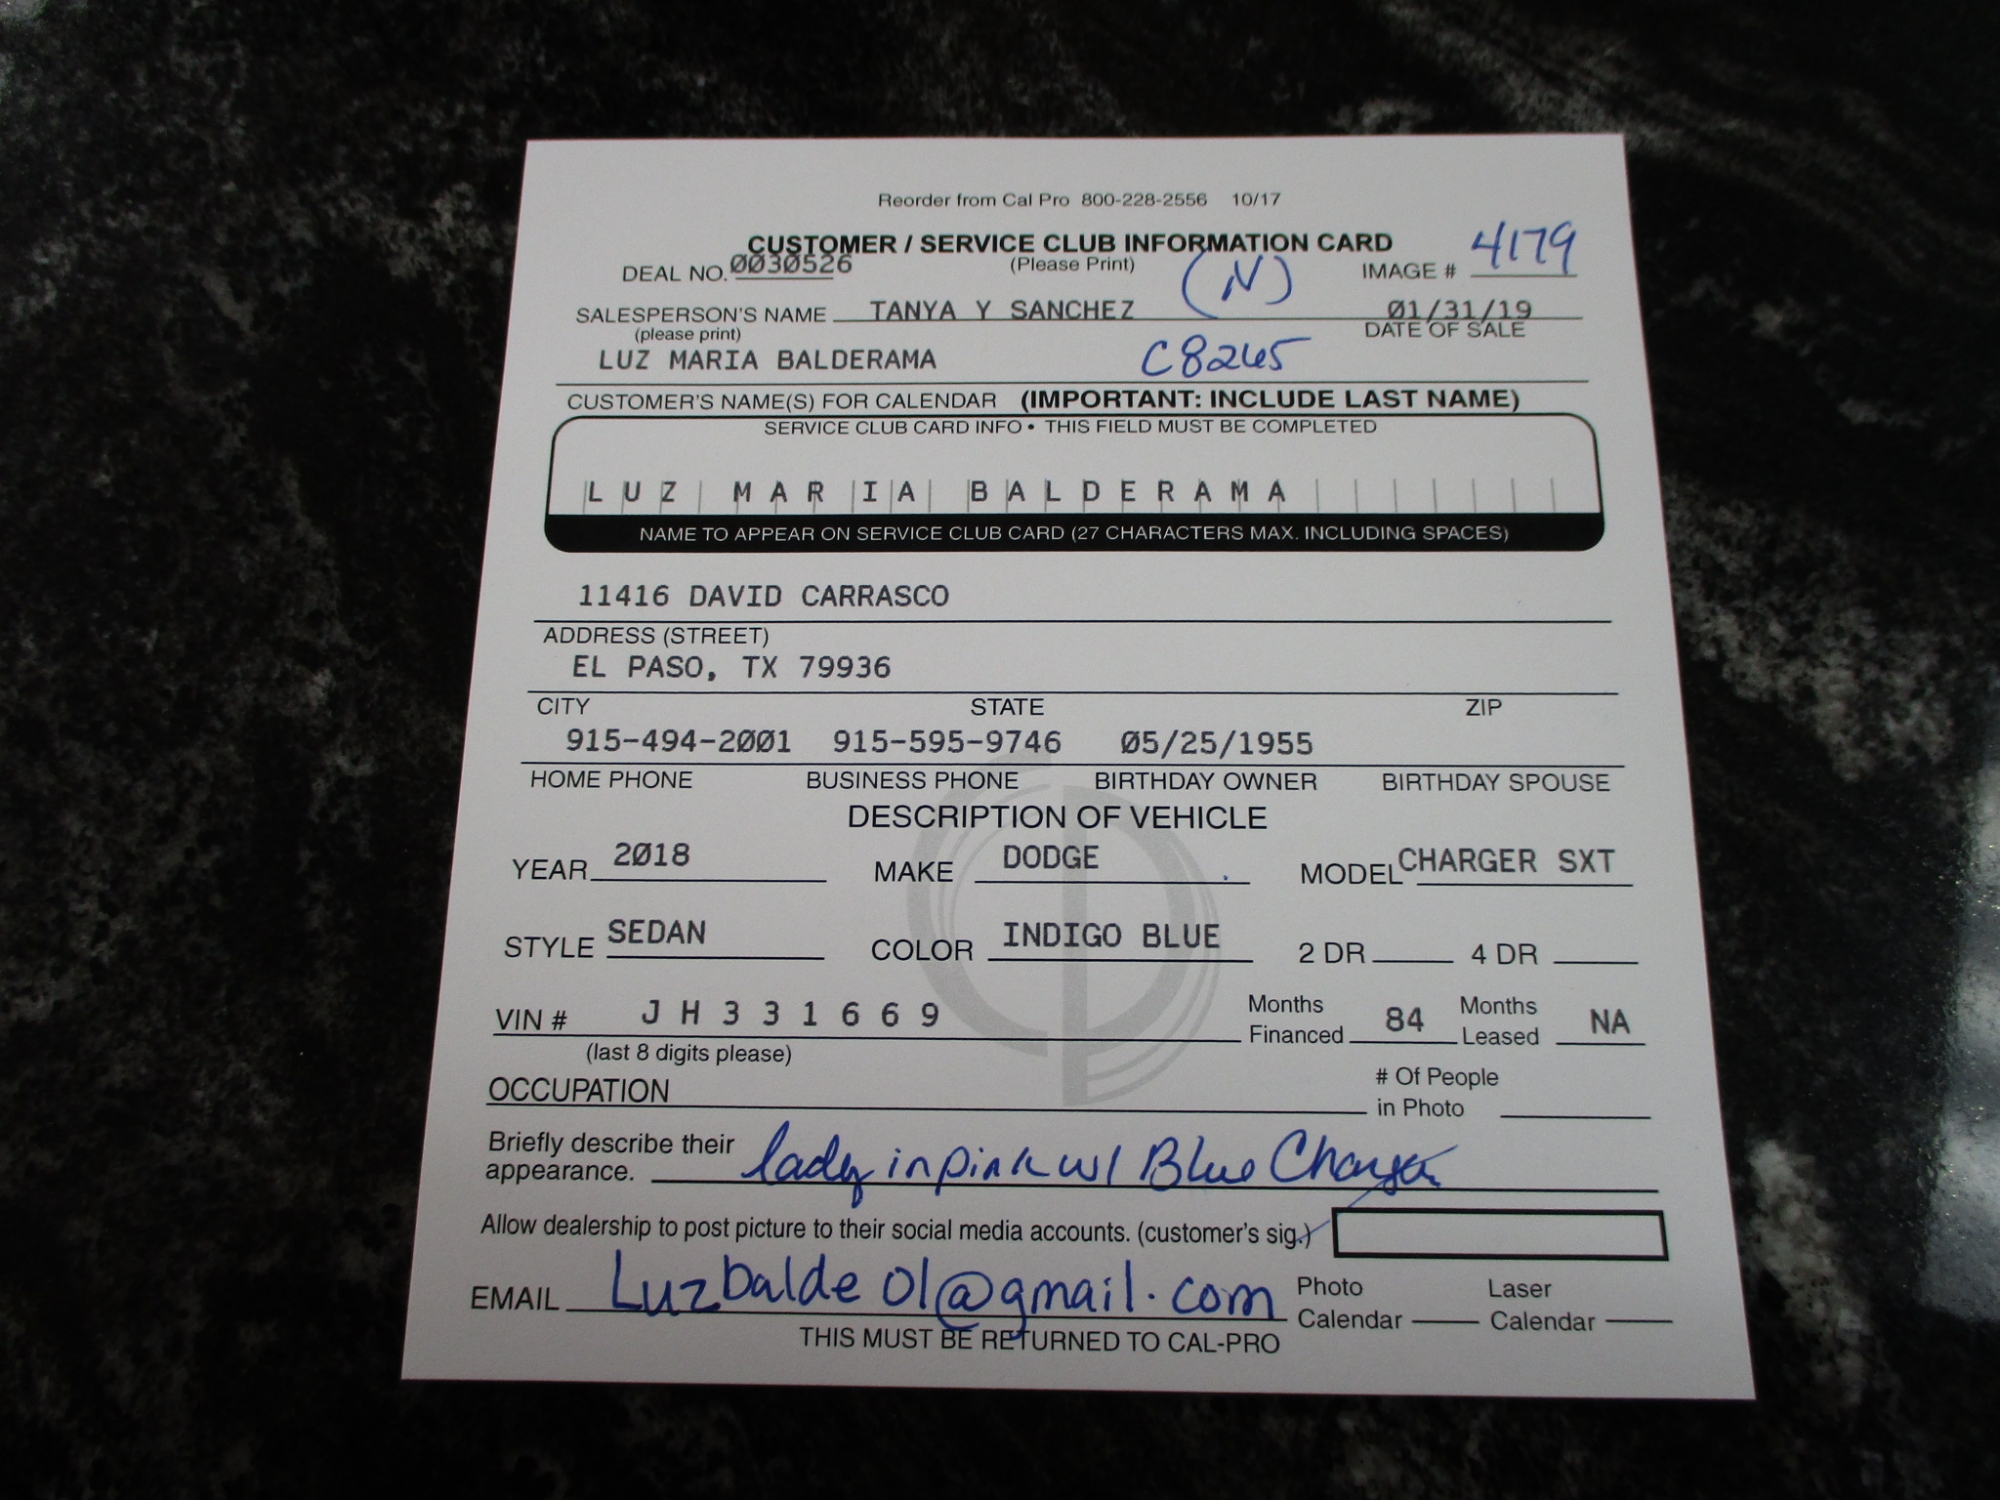 Reorder from Cal Pro 800-228-2556 10/17
CUSTOMER / SERVICE CLUB INFORMATION CARD
DEAL NO. 0030526 (Please Print) (N) IMAGE # 4179
SALESPERSON'S NAME TANYA Y SANCHEZ 01/31/19
(please print) DATE OF SALE
LUZ MARIA BALDERAMA C8265
CUSTOMER'S NAME(S) FOR CALENDAR (IMPORTANT: INCLUDE LAST NAME)
SERVICE CLUB CARD INFO • THIS FIELD MUST BE COMPLETED
LUZ MARIA BALDERAMA
NAME TO APPEAR ON SERVICE CLUB CARD (27 CHARACTERS MAX. INCLUDING SPACES)
11416 DAVID CARRASCO
ADDRESS (STREET)
EL PASO, TX 79936
CITY STATE ZIP
915-494-2001 915-595-9746 05/25/1955
HOME PHONE BUSINESS PHONE BIRTHDAY OWNER BIRTHDAY SPOUSE
DESCRIPTION OF VEHICLE
YEAR 2018 MAKE DODGE MODEL CHARGER SXT
STYLE SEDAN COLOR INDIGO BLUE 2 DR 4 DR
VIN # JH331669 Months Financed 84 Months Leased NA
(last 8 digits please)
OCCUPATION # Of People in Photo
Briefly describe their appearance. lady in pink w/ Blue Charger
Allow dealership to post picture to their social media accounts. (customer's sig.)
EMAIL Luzbalde01@gmail.com Photo Calendar Laser Calendar
THIS MUST BE RETURNED TO CAL-PRO